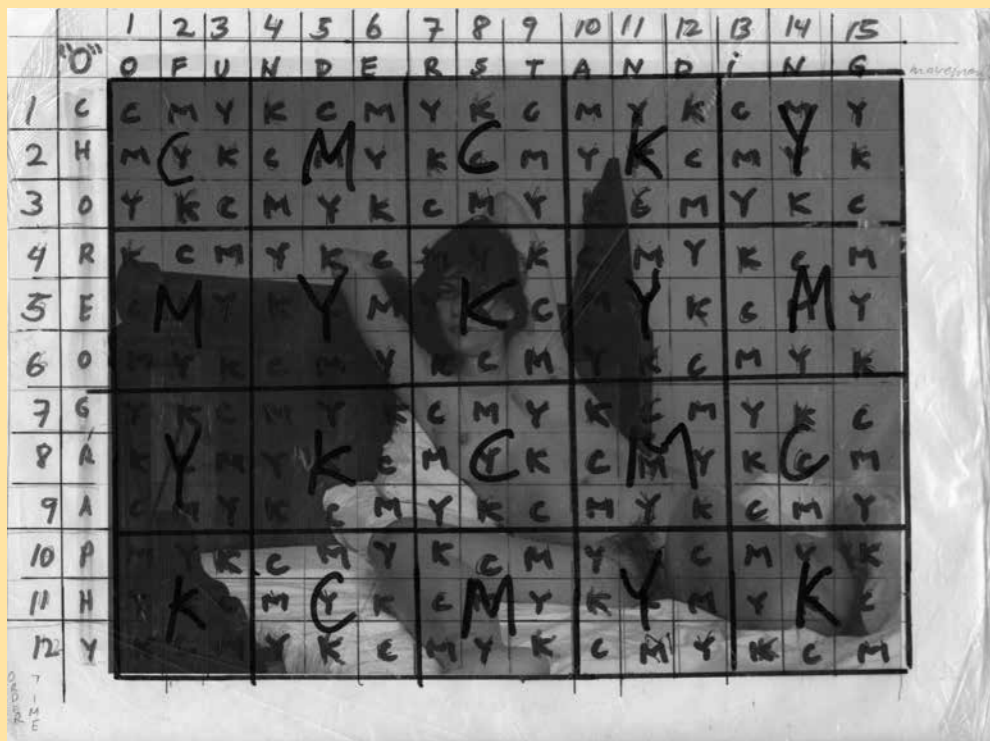 1 2 3 4 5 6 7 8 9 10 11 12 13 14 15
"O" O F U N D E R S T A N D i N G
1 C C M Y K C M Y K C M Y K C M Y
C M C K Y
2 H M Y K C M Y K C M Y K C M Y K
3 O Y K C M Y K C M Y K C M Y K C
4 R K C M Y K C M Y K C M Y K C M
M Y K Y M
5 E Y K M C Y K C Y
6 O M Y K C M Y K C M Y K C M Y K
7 G Y K C M Y K C M Y K C M Y K C
Y K C M C
8 R K M Y C M Y K C M Y K C M
9 A C M Y K C M Y K C M Y K C M Y
10 P M Y K C M Y K C M Y C M Y K
K C M Y K
11 H C M Y K C Y K M Y C
12 Y Y K C M Y K C M Y K C M
ORDER
TIME